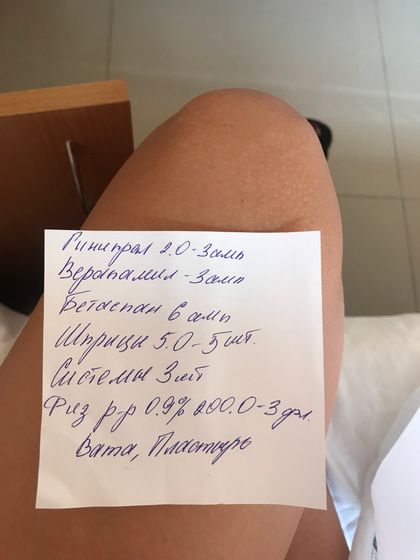 Гинипрал 2.0-3амп
Верапамил-3амп
Бетаспан 6 амп
Шприцы 5.0-5 шт.
Системы 3 шт
Физ р-р 0.9% 200.0-3 фл.
Вата, Пластырь